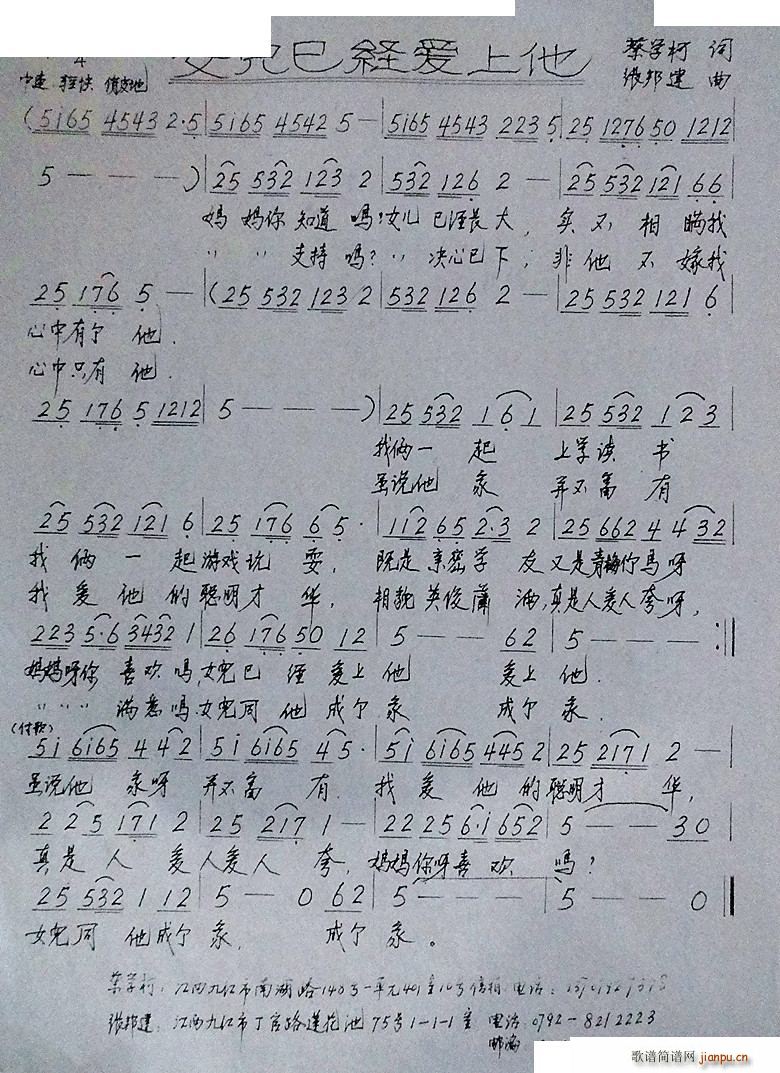 女儿已経爱上他
蔡学柯 词
张邦建 曲
4
中速 轻快 俏皮地
(5i65 4543 2·5|5i65 4542 5 —|5i65 4543 223 5|25 1276 50 1212|
5 — — —)|25 532 123 2|532 126 2 —|25 532 121 66|
妈妈你知道吗?女儿已经长大,实不相瞒我
〃 〃 支持吗?〃 决心已下,非他不嫁我
25 176 5 —|(25 532 123 2|532 126 2 —|25 532 121 6|
心中有了他.
心中只有他.
25 176 5 1212|5 — — —)|25 532 1 6 1|25 532 1 2 3|
我俩一起 上学读书
虽说他家 并不富有
25 532 121 6|25 176 6 5·|112 65 2·3 2|25 662 4 432|
我俩一起游戏玩耍,既是亲密学友又是青梅竹马呀
我爱他的聪明才华,相貌英俊潇洒,真是人爱人夸呀,
223 5·6 3432 1|26 176 50 12|5 — — 62|5 — — — :‖
妈妈呀你喜欢吗,女儿已经爱上他 爱上他.
〃 〃 〃 满意吗,女儿同他成了家 成了家.
(付歌)
5i 6i65 4 42|5i 6i65 4 5·|5i 6i65 445 2|25 2171 2 —|
虽说他家呀并不富有.我爱他的聪明才华,
2 25 171 2|25 217 1 —|22 25 6·i 652|5 — — 30|
真是人爱人爱人夸,妈妈你呀喜欢吗?
25 532 1 12|5 — 0 62|5 — — —|5 — — 0‖
女儿同他成了家,成了家。
蔡学柯:江西九江市南湖路140号一单元401室10号信箱 电话:
张邦建:江西九江市丁官路莲花池75号1-1-1室 电话:0792-8212223
邮编
歌谱简谱网 jianpu.cn